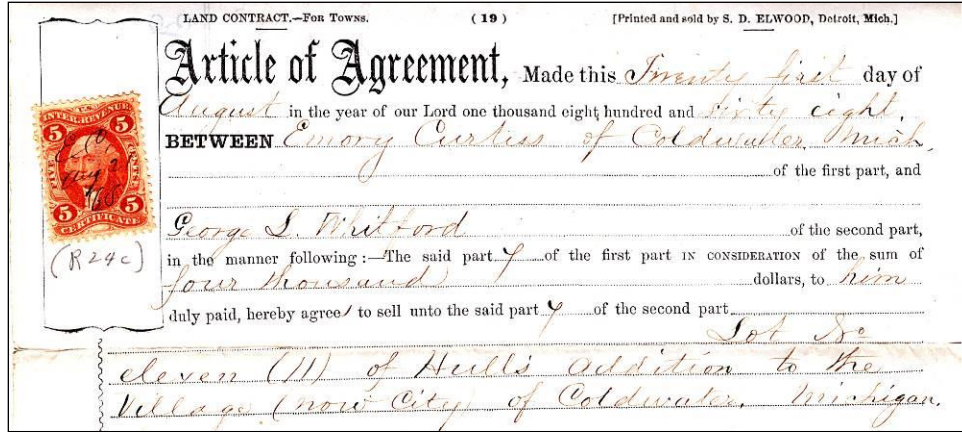 LAND CONTRACT.—FOR TOWNS. (19) [Printed and sold by S. D. ELWOOD, Detroit, Mich.]
Article of Agreement, Made this Twenty first day of
August in the year of our Lord one thousand eight hundred and sixty eight,
BETWEEN Emory Curtiss of Coldwater Mich,
of the first part, and
George L. Whitford of the second part,
in the manner following:—The said party of the first part IN CONSIDERATION of the sum of
four thousand dollars, to him
duly paid, hereby agree to sell unto the said party of the second part
Lot No
eleven (11) of Hull's Addition to the
Village (now City) of Coldwater, Michigan.
U.S.
INTER. REVENUE.
5 5
E.C.
Aug 2
/68
FIVE CENTS.
5 5
CERTIFICATE
(R24c)